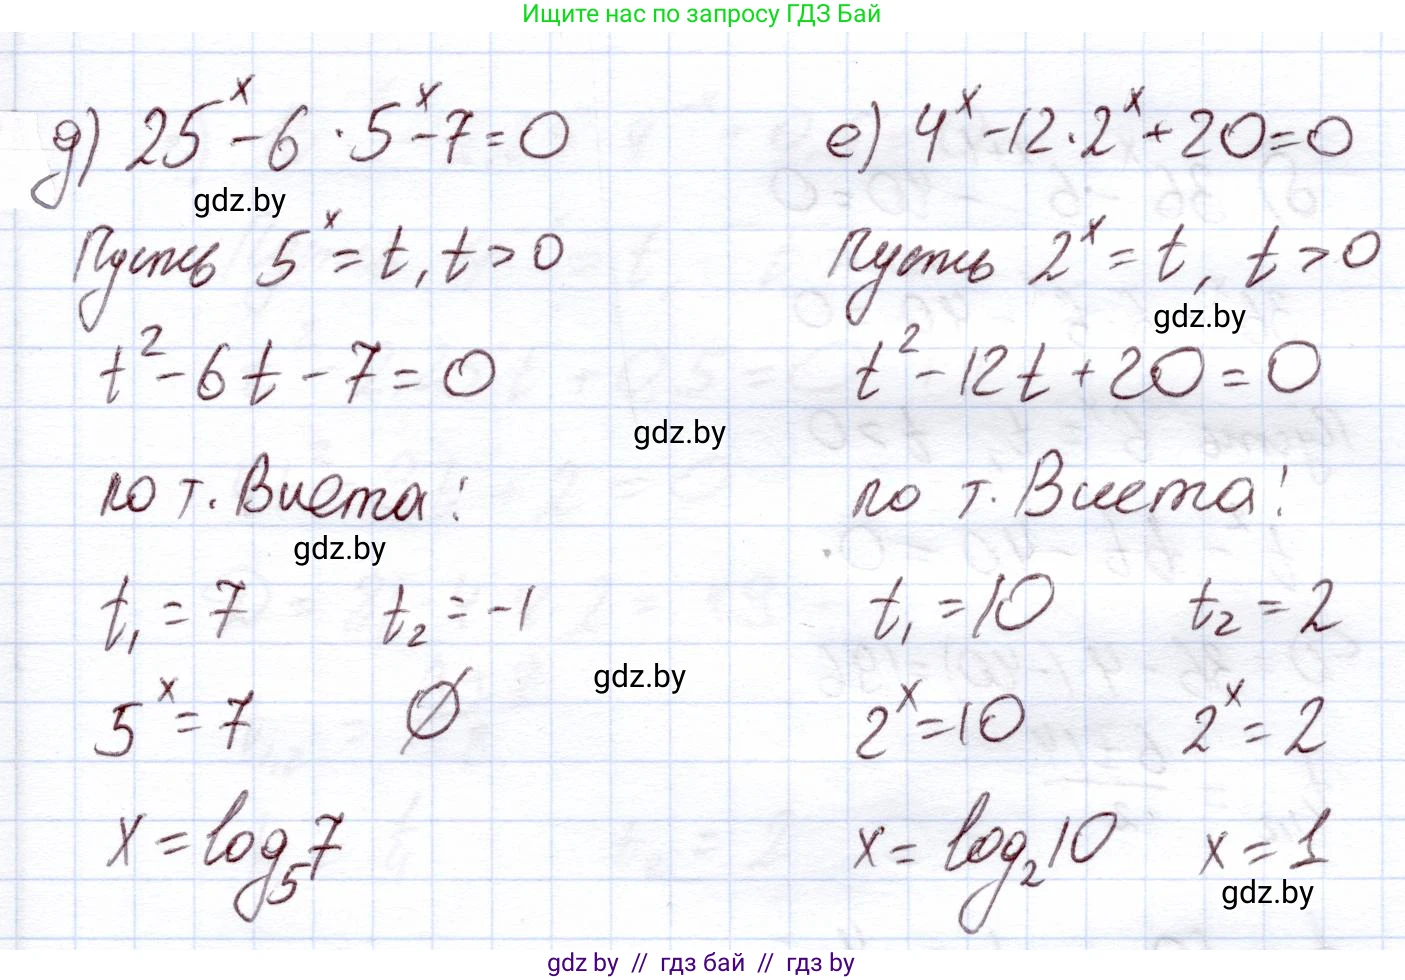 Ищите нас по запросу ГДЗ Бай
д) 25ˣ - 6 · 5ˣ - 7 = 0
gdz.by
Пусть 5ˣ = t, t > 0
t² - 6t - 7 = 0
по т. Виета:
gdz.by
t₁ = 7 t₂ = -1
5ˣ = 7 ∅
x = log₅7
gdz.by
gdz.by
е) 4ˣ - 12 · 2ˣ + 20 = 0
Пусть 2ˣ = t, t > 0
gdz.by
t² - 12t + 20 = 0
по т. Виета:
t₁ = 10 t₂ = 2
2ˣ = 10 2ˣ = 2
x = log₂10 x = 1
gdz.by
gdz by // гдз бай // гдз by